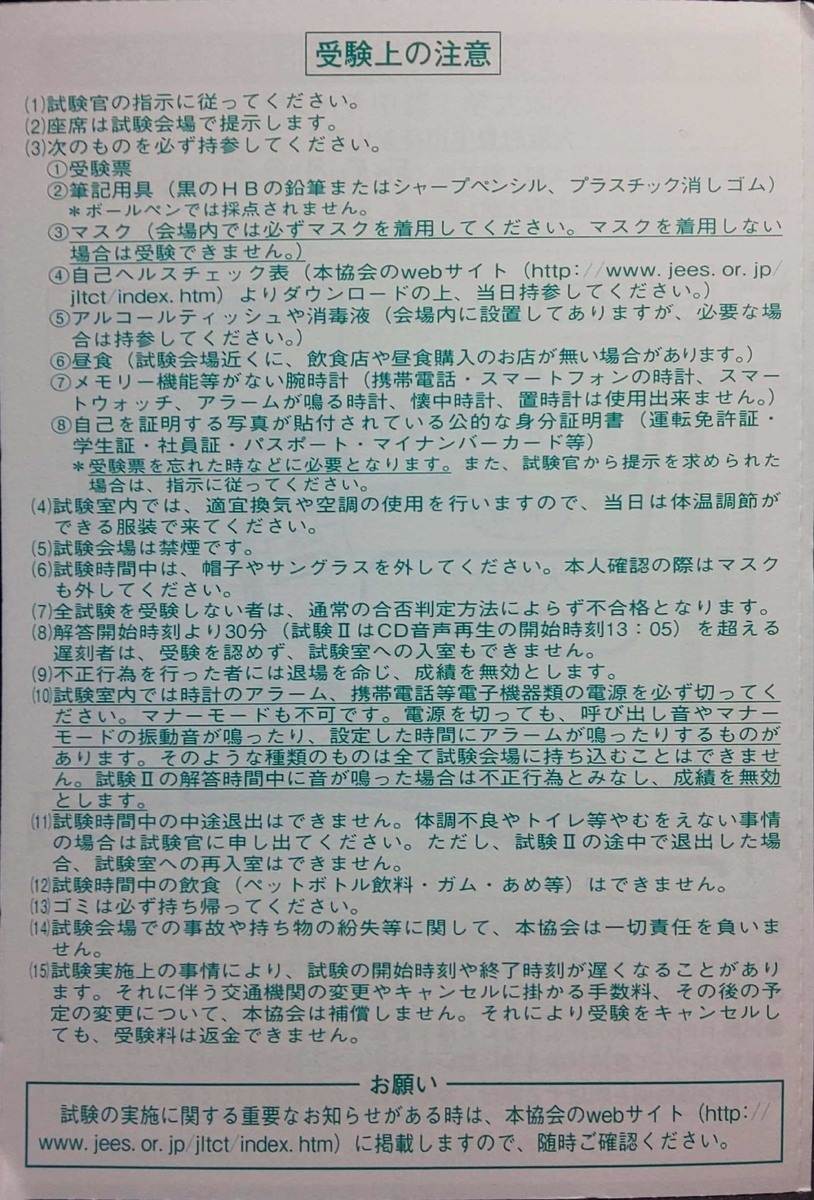 受験上の注意
⑴試験官の指示に従ってください。
⑵座席は試験会場で提示します。
⑶次のものを必ず持参してください。
①受験票
②筆記用具（黒のＨＢの鉛筆またはシャープペンシル、プラスチック消しゴム）
＊ボールペンでは採点されません。
③マスク（会場内では必ずマスクを着用してください。マスクを着用しない
場合は受験できません。）
④自己ヘルスチェック表（本協会のwebサイト（http://www.jees.or.jp/
jltct/index.htm）よりダウンロードの上、当日持参してください。）
⑤アルコールティッシュや消毒液（会場内に設置してありますが、必要な場
合は持参してください。）
⑥昼食（試験会場近くに、飲食店や昼食購入のお店が無い場合があります。）
⑦メモリー機能等がない腕時計（携帯電話・スマートフォンの時計、スマー
トウォッチ、アラームが鳴る時計、懐中時計、置時計は使用出来ません。）
⑧自己を証明する写真が貼付されている公的な身分証明書（運転免許証・
学生証・社員証・パスポート・マイナンバーカード等）
＊受験票を忘れた時などに必要となります。また、試験官から提示を求められた
場合は、指示に従ってください。
⑷試験室内では、適宜換気や空調の使用を行いますので、当日は体温調節が
できる服装で来てください。
⑸試験会場は禁煙です。
⑹試験時間中は、帽子やサングラスを外してください。本人確認の際はマスク
も外してください。
⑺全試験を受験しない者は、通常の合否判定方法によらず不合格となります。
⑻解答開始時刻より30分（試験ⅡはCD音声再生の開始時刻13：05）を超える
遅刻者は、受験を認めず、試験室への入室もできません。
⑼不正行為を行った者には退場を命じ、成績を無効とします。
⑽試験室内では時計のアラーム、携帯電話等電子機器類の電源を必ず切ってく
ださい。マナーモードも不可です。電源を切っても、呼び出し音やマナー
モードの振動音が鳴ったり、設定した時間にアラームが鳴ったりするものが
あります。そのような種類のものは全て試験会場に持ち込むことはできませ
ん。試験Ⅱの解答時間中に音が鳴った場合は不正行為とみなし、成績を無効
とします。
⑾試験時間中の中途退出はできません。体調不良やトイレ等やむをえない事情
の場合は試験官に申し出てください。ただし、試験Ⅱの途中で退出した場
合、試験室への再入室はできません。
⑿試験時間中の飲食（ペットボトル飲料・ガム・あめ等）はできません。
⒀ゴミは必ず持ち帰ってください。
⒁試験会場での事故や持ち物の紛失等に関して、本協会は一切責任を負いま
せん。
⒂試験実施上の事情により、試験の開始時刻や終了時刻が遅くなることがあり
ます。それに伴う交通機関の変更やキャンセルに掛かる手数料、その後の予
定の変更について、本協会は補償しません。それにより受験をキャンセルし
ても、受験料は返金できません。
お願い
試験の実施に関する重要なお知らせがある時は、本協会のwebサイト（http://
www.jees.or.jp/jltct/index.htm）に掲載しますので、随時ご確認ください。